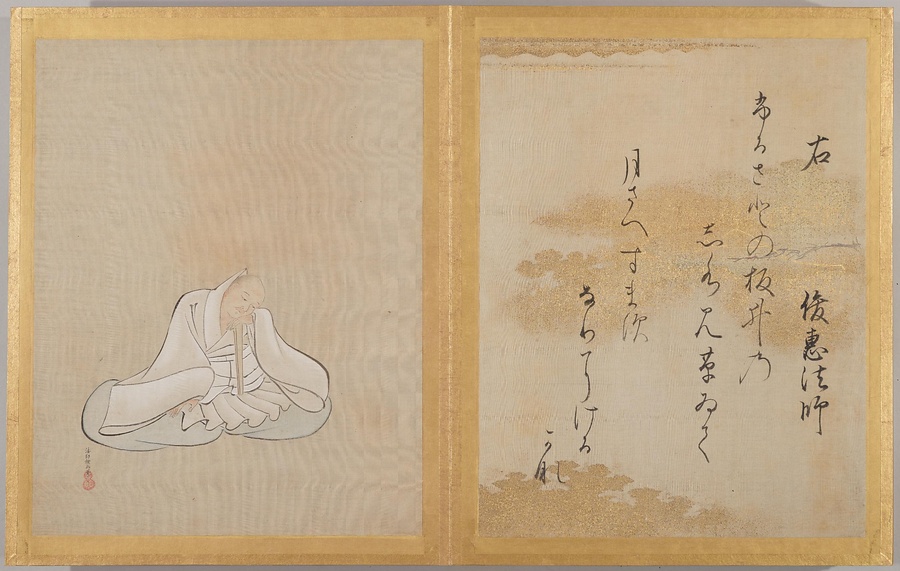 右　俊惠法師
ふるさとの板井の
し水み草ゐて
月さへすます
なりにける
かな